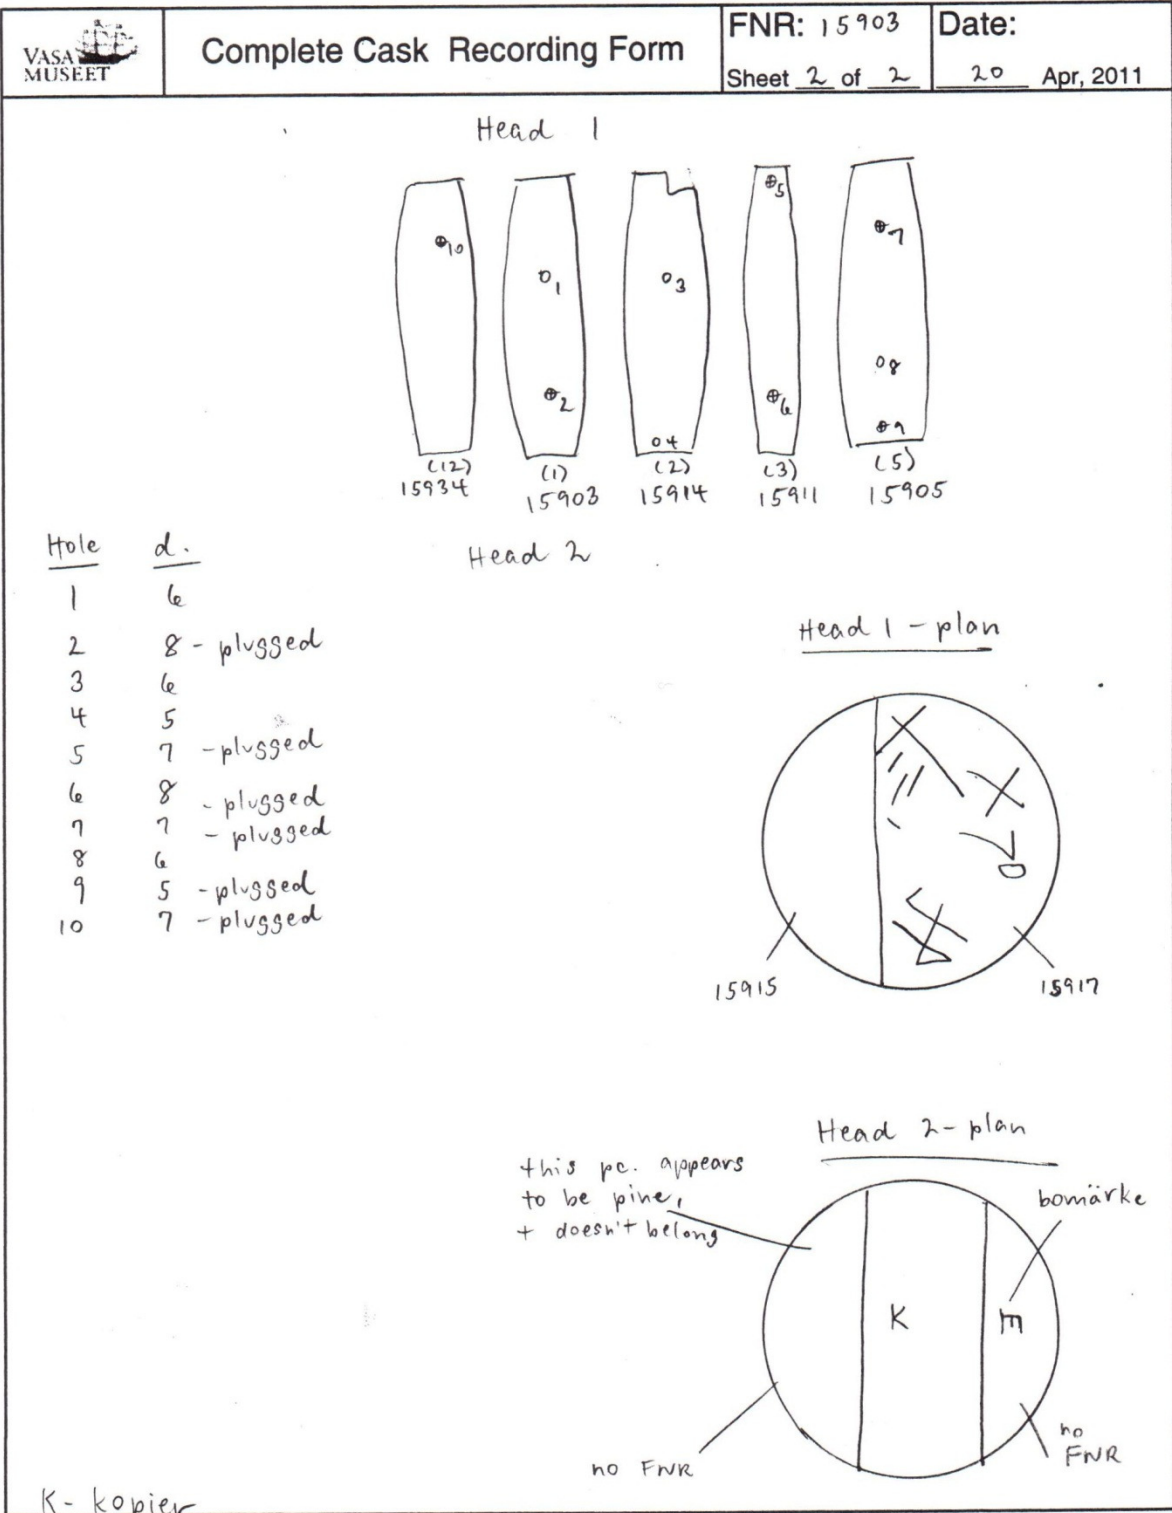 VASA
MUSEET
Complete Cask Recording Form
FNR: 15903
Sheet 2 of 2
Date:
20 Apr, 2011
Head 1
10
1
2
3
4
5
6
7
8
9
(12)
15934
(1)
15903
(2)
15914
(3)
15911
(5)
15905
Head 2
Hole d.
1 6
2 8 - plugged
3 6
4 5
5 7 - plugged
6 8 - plugged
7 7 - plugged
8 6
9 5 - plugged
10 7 - plugged
Head 1 - plan
15915
15917
Head 2 - plan
this pc. appears
to be pine,
+ doesn't belong
bomärke
K
no FNR
no
FNR
K - kopier